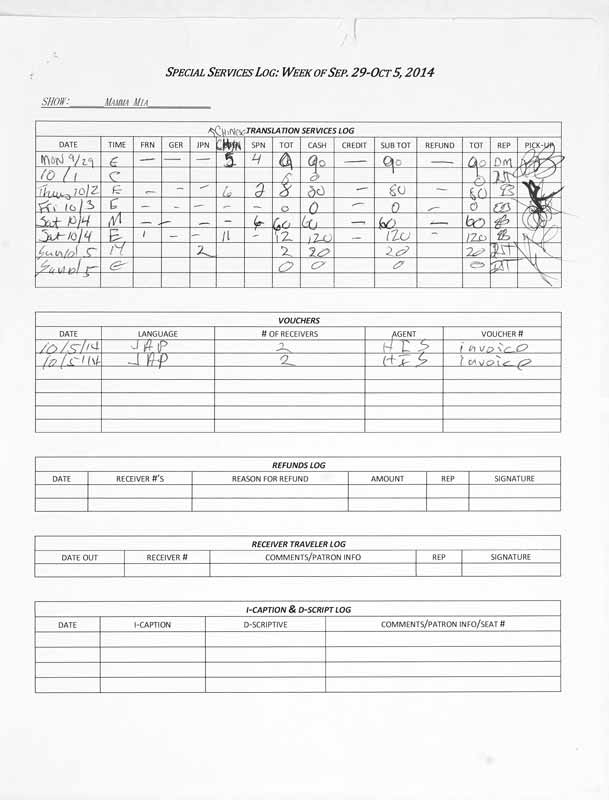 SPECIAL SERVICES LOG: WEEK OF SEP. 29-OCT 5, 2014
SHOW: MAMMA MIA
CHINESE
TRANSLATION SERVICES LOG
DATE TIME FRN GER JPN SPN TOT CASH CREDIT SUB TOT REFUND TOT REP PICK-UP
MON 9/29 E — — — 5 4 9 90 — 90 — 90 DM
10/1 0 0 0
Thurs 10/2 E - - - 6 2 8 80 - 80 - 80
Fri 10/3 E - - - - - 0 0 - 0 - 0
Sat 10/4 M - - - - 6 60 60 - 60 - 60
Sat 10/4 E 1 - - 11 - 12 120 - 120 - 120
Sund 5 M 2 2 20 20 20
Sund 5 E 0 0 0 0
VOUCHERS
DATE LANGUAGE # OF RECEIVERS AGENT VOUCHER #
10/5/14 JAP 2 HIS invoice
10/5/14 JAP 2 HIS invoice
REFUNDS LOG
DATE RECEIVER #'S REASON FOR REFUND AMOUNT REP SIGNATURE
RECEIVER TRAVELER LOG
DATE OUT RECEIVER # COMMENTS/PATRON INFO REP SIGNATURE
I-CAPTION & D-SCRIPT LOG
DATE I-CAPTION D-SCRIPTIVE COMMENTS/PATRON INFO/SEAT #